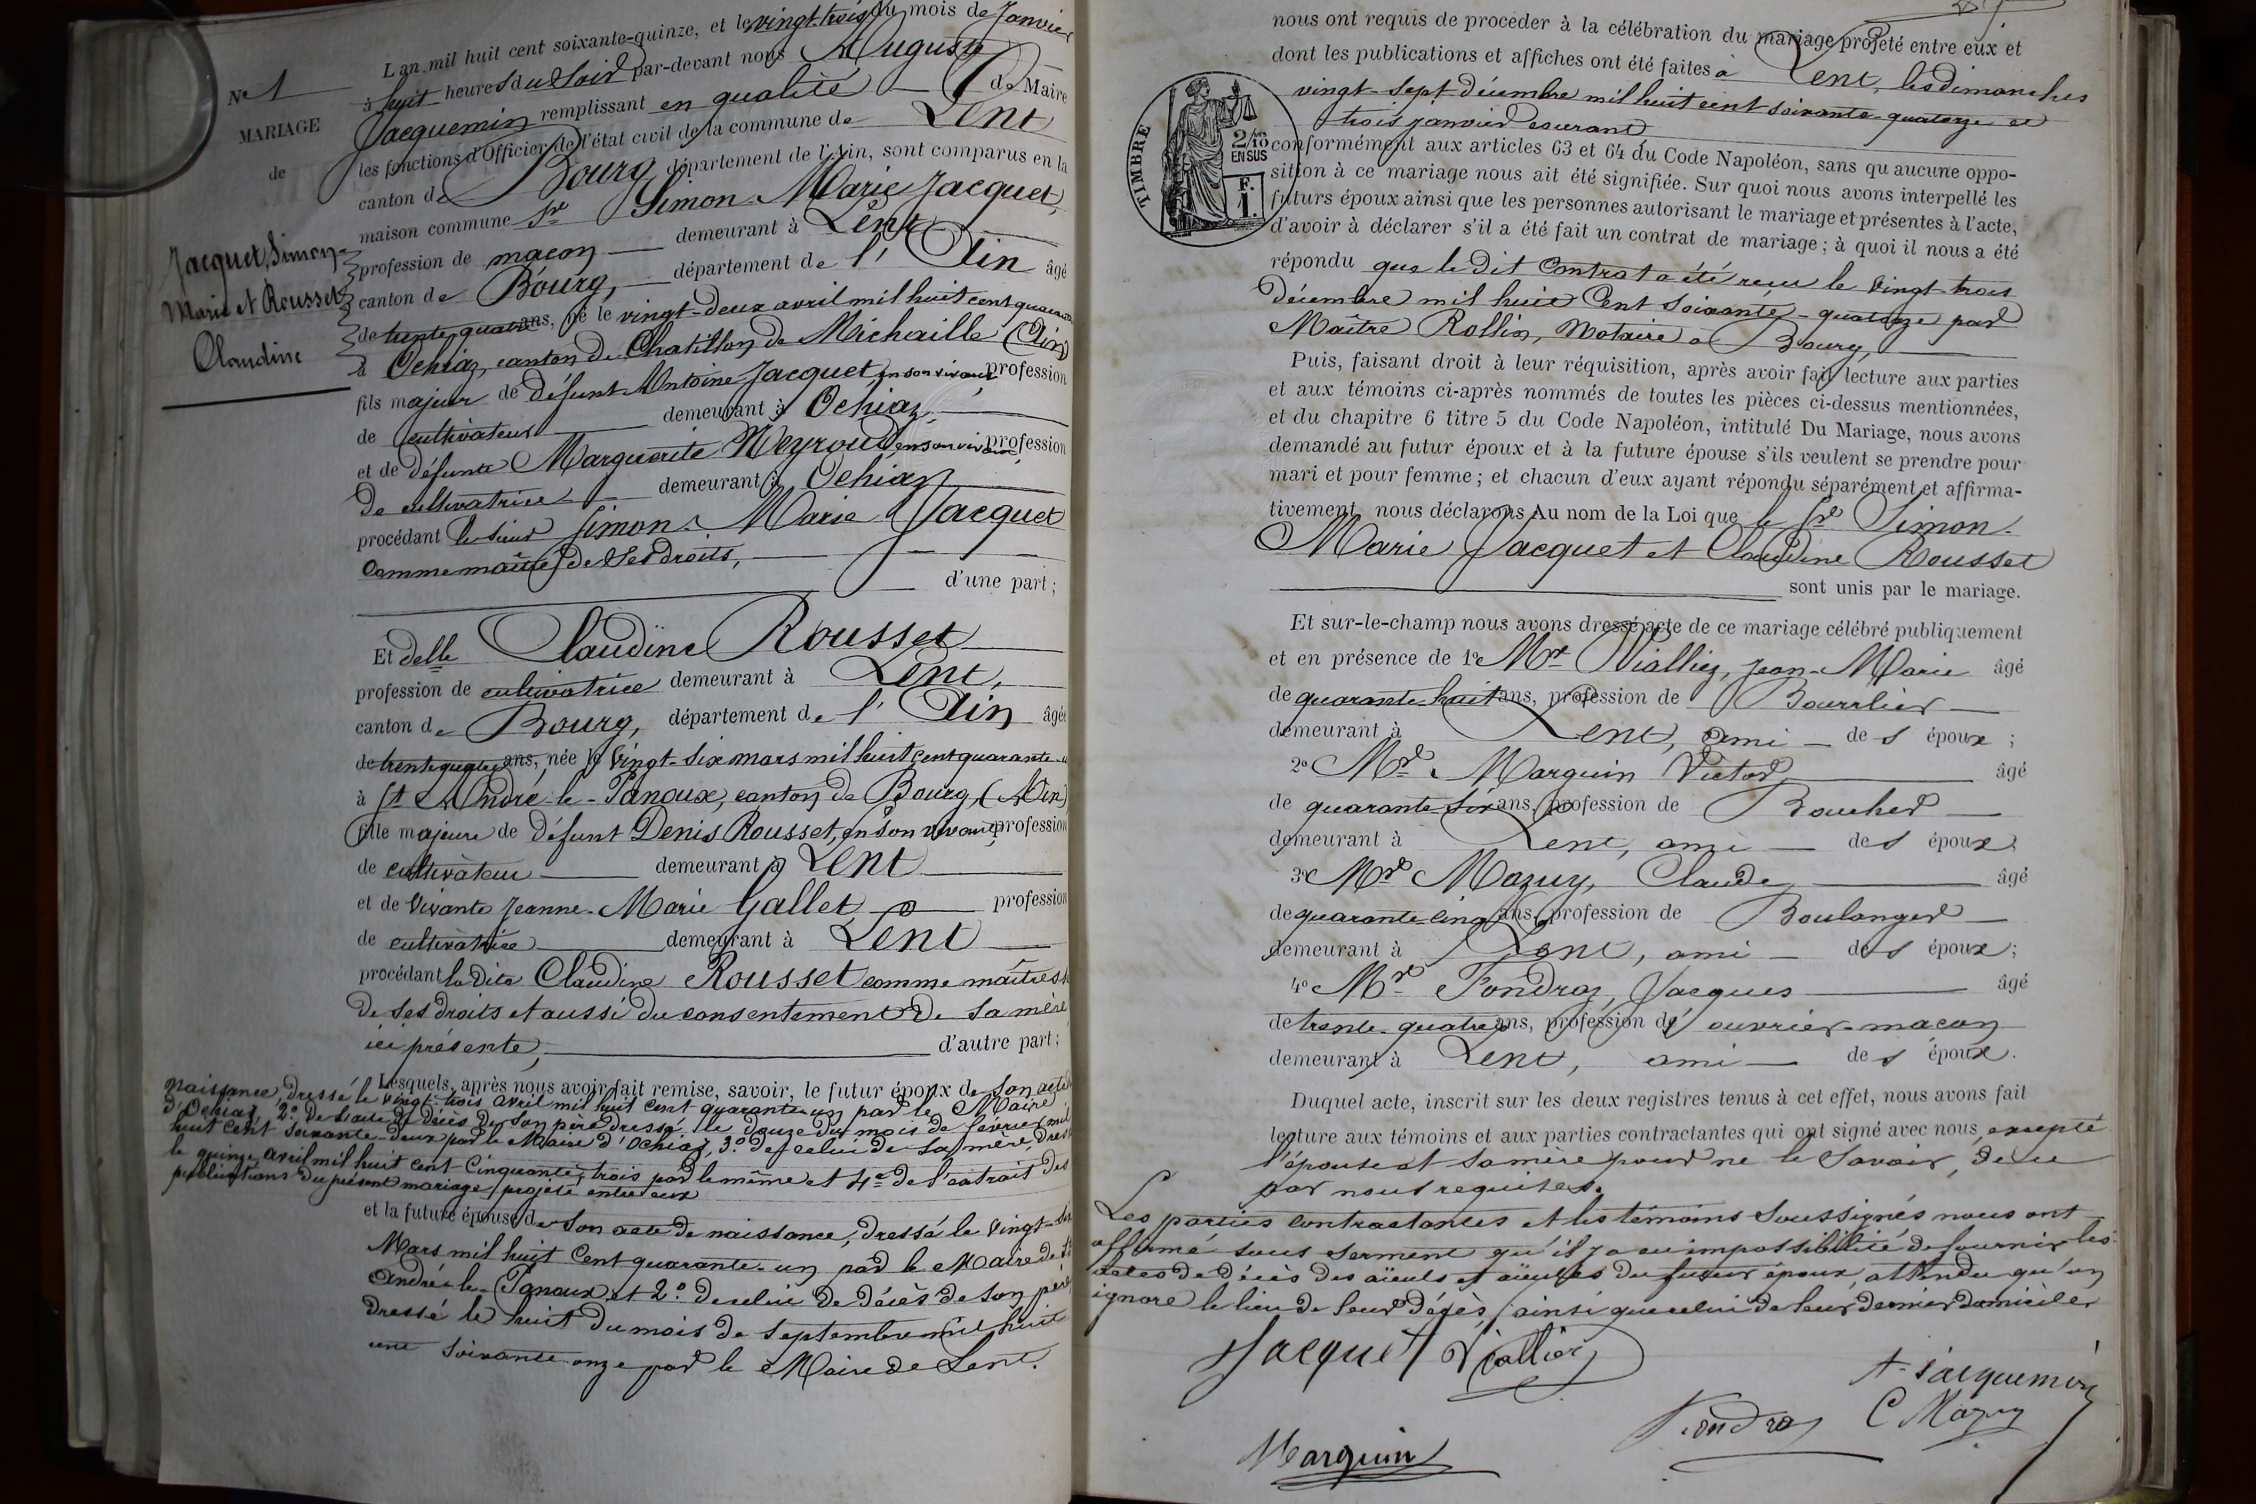 L'an mil huit cent soixante-quinze, et le vingt-trois du mois de Janvier
à huit heures du Soir par-devant nous Auguste
Jacquemin remplissant en qualité de Maire
les fonctions d'Officier de l'état civil de la commune de Lent
canton de Bourg département de l'Ain, sont comparus en la
maison commune Sr Simon-Marie Jacquet,
profession de maçon demeurant à Lent
canton de Bourg, département de l'Ain âgé
de trente-quatre ans, né le vingt-deux avril mil huit cent quarante
à Ochiaz, canton de Chatillon de Michaille (Ain)
fils majeur de défunt Antoine Jacquet en son vivant profession
de cultivateur demeurant à Ochiaz,
et de défunte Marguerite Neyroud en son vivant profession
de cultivatrice demeurant à Ochiaz
procédant le sieur Simon-Marie Jacquet
comme maître de Ses droits,
d'une part ;
No 1
MARIAGE
de
Jacquet, Simon-
Marie et Rousset
Claudine
Et delle Claudine Rousset
profession de cultivatrice demeurant à Lent,
canton de Bourg, département de l'Ain âgée
de trente quatre ans, née le Vingt-six mars mil huit cent quarante-u
à St André-le-Panoux, canton de Bourg, (Ain)
fille majeure de défunt Denis Rousset, en son vivant, profession
de cultivateur demeurant à Lent
et de Vivante Jeanne-Marie Gallet profession
de cultivatrice demeurant à Lent
procédant la dite Claudine Rousset comme maîtresse
de ses droits et aussi du consentement de sa mère
ici présente, d'autre part ;
Lesquels, après nous avoir fait remise, savoir, le futur époux de Son acte de
naissance, dressé le vingt-trois avril mil huit cent quarante-un par le Maire
d'Ochiaz, 2o de l'acte de décès de Son père dressé le douze du mois de février mil
huit cent soixante-deux par le Maire d'Ochiaz, 3o de celui de Sa mère, dressé
le quinze avril mil huit cent cinquante-trois par le même et 4o de l'extrait des
publications du présent mariage projeté entre eux
et la future épouse de Son acte de naissance, dressé le Vingt-Six
Mars mil huit Cent quarante-un par le Maire de St
André-le-Panoux et 2o de celui de décès de Son père
dressé le huit du mois de Septembre mil huit
cent soixante-onze par le Maire de Lent.
nous ont requis de procéder à la célébration du mariage projeté entre eux et
dont les publications et affiches ont été faites à Lent, les dimanches
vingt-sept décembre mil huit cent soixante-quatorze et
trois janvier courant
TIMBRE
2/10
EN SUS
F.
1.
conformément aux articles 63 et 64 du Code Napoléon, sans qu'aucune oppo-
sition à ce mariage nous ait été signifiée. Sur quoi nous avons interpellé les
futurs époux ainsi que les personnes autorisant le mariage et présentes à l'acte,
d'avoir à déclarer s'il a été fait un contrat de mariage ; à quoi il nous a été
répondu que le dit Contrat a été reçu le Vingt-trois
décembre mil huit Cent Soixante-quatorze par
Maître Rollin, Notaire à Bourg,
Puis, faisant droit à leur réquisition, après avoir fait lecture aux parties
et aux témoins ci-après nommés de toutes les pièces ci-dessus mentionnées,
et du chapitre 6 titre 5 du Code Napoléon, intitulé Du Mariage, nous avons
demandé au futur époux et à la future épouse s'ils veulent se prendre pour
mari et pour femme ; et chacun d'eux ayant répondu séparément et affirma-
tivement, nous déclarons Au nom de la Loi que le Sr Simon-
Marie Jacquet et Claudine Rousset
sont unis par le mariage.
Et sur-le-champ nous avons dressé acte de ce mariage célébré publiquement
et en présence de 1o Mr Viallier, Jean-Marie âgé
de quarante-huit ans, profession de Bourrelier
demeurant à Lent, ami des époux ;
2o Mr Marguin Victor âgé
de quarante-six ans, profession de Boucher
demeurant à Lent, ami des époux ;
3o Mr Mazuy, Claude âgé
de quarante-cinq ans, profession de Boulanger
demeurant à Lent, ami des époux ;
4o Mr Fondraz, Jacques âgé
de trente-quatre ans, profession de ouvrier-maçon
demeurant à Lent, ami des époux.
Duquel acte, inscrit sur les deux registres tenus à cet effet, nous avons fait
lecture aux témoins et aux parties contractantes qui ont signé avec nous, excepté
l'épouse et Sa mère pour ne le Savoir, de ce
par nous requises.
Les parties contractantes et les témoins Soussignés nous ont
affirmé sous serment qu'il y a eu impossibilité de fournir les
actes de décès des aïeuls et aïeules du futur époux, attendu qu'on
ignore le lieu de leur décès, ainsi que celui de leur dernier domicile
Jacquet Viallier
A. Jacquemin
Fondraz C Mazuy
Marguin